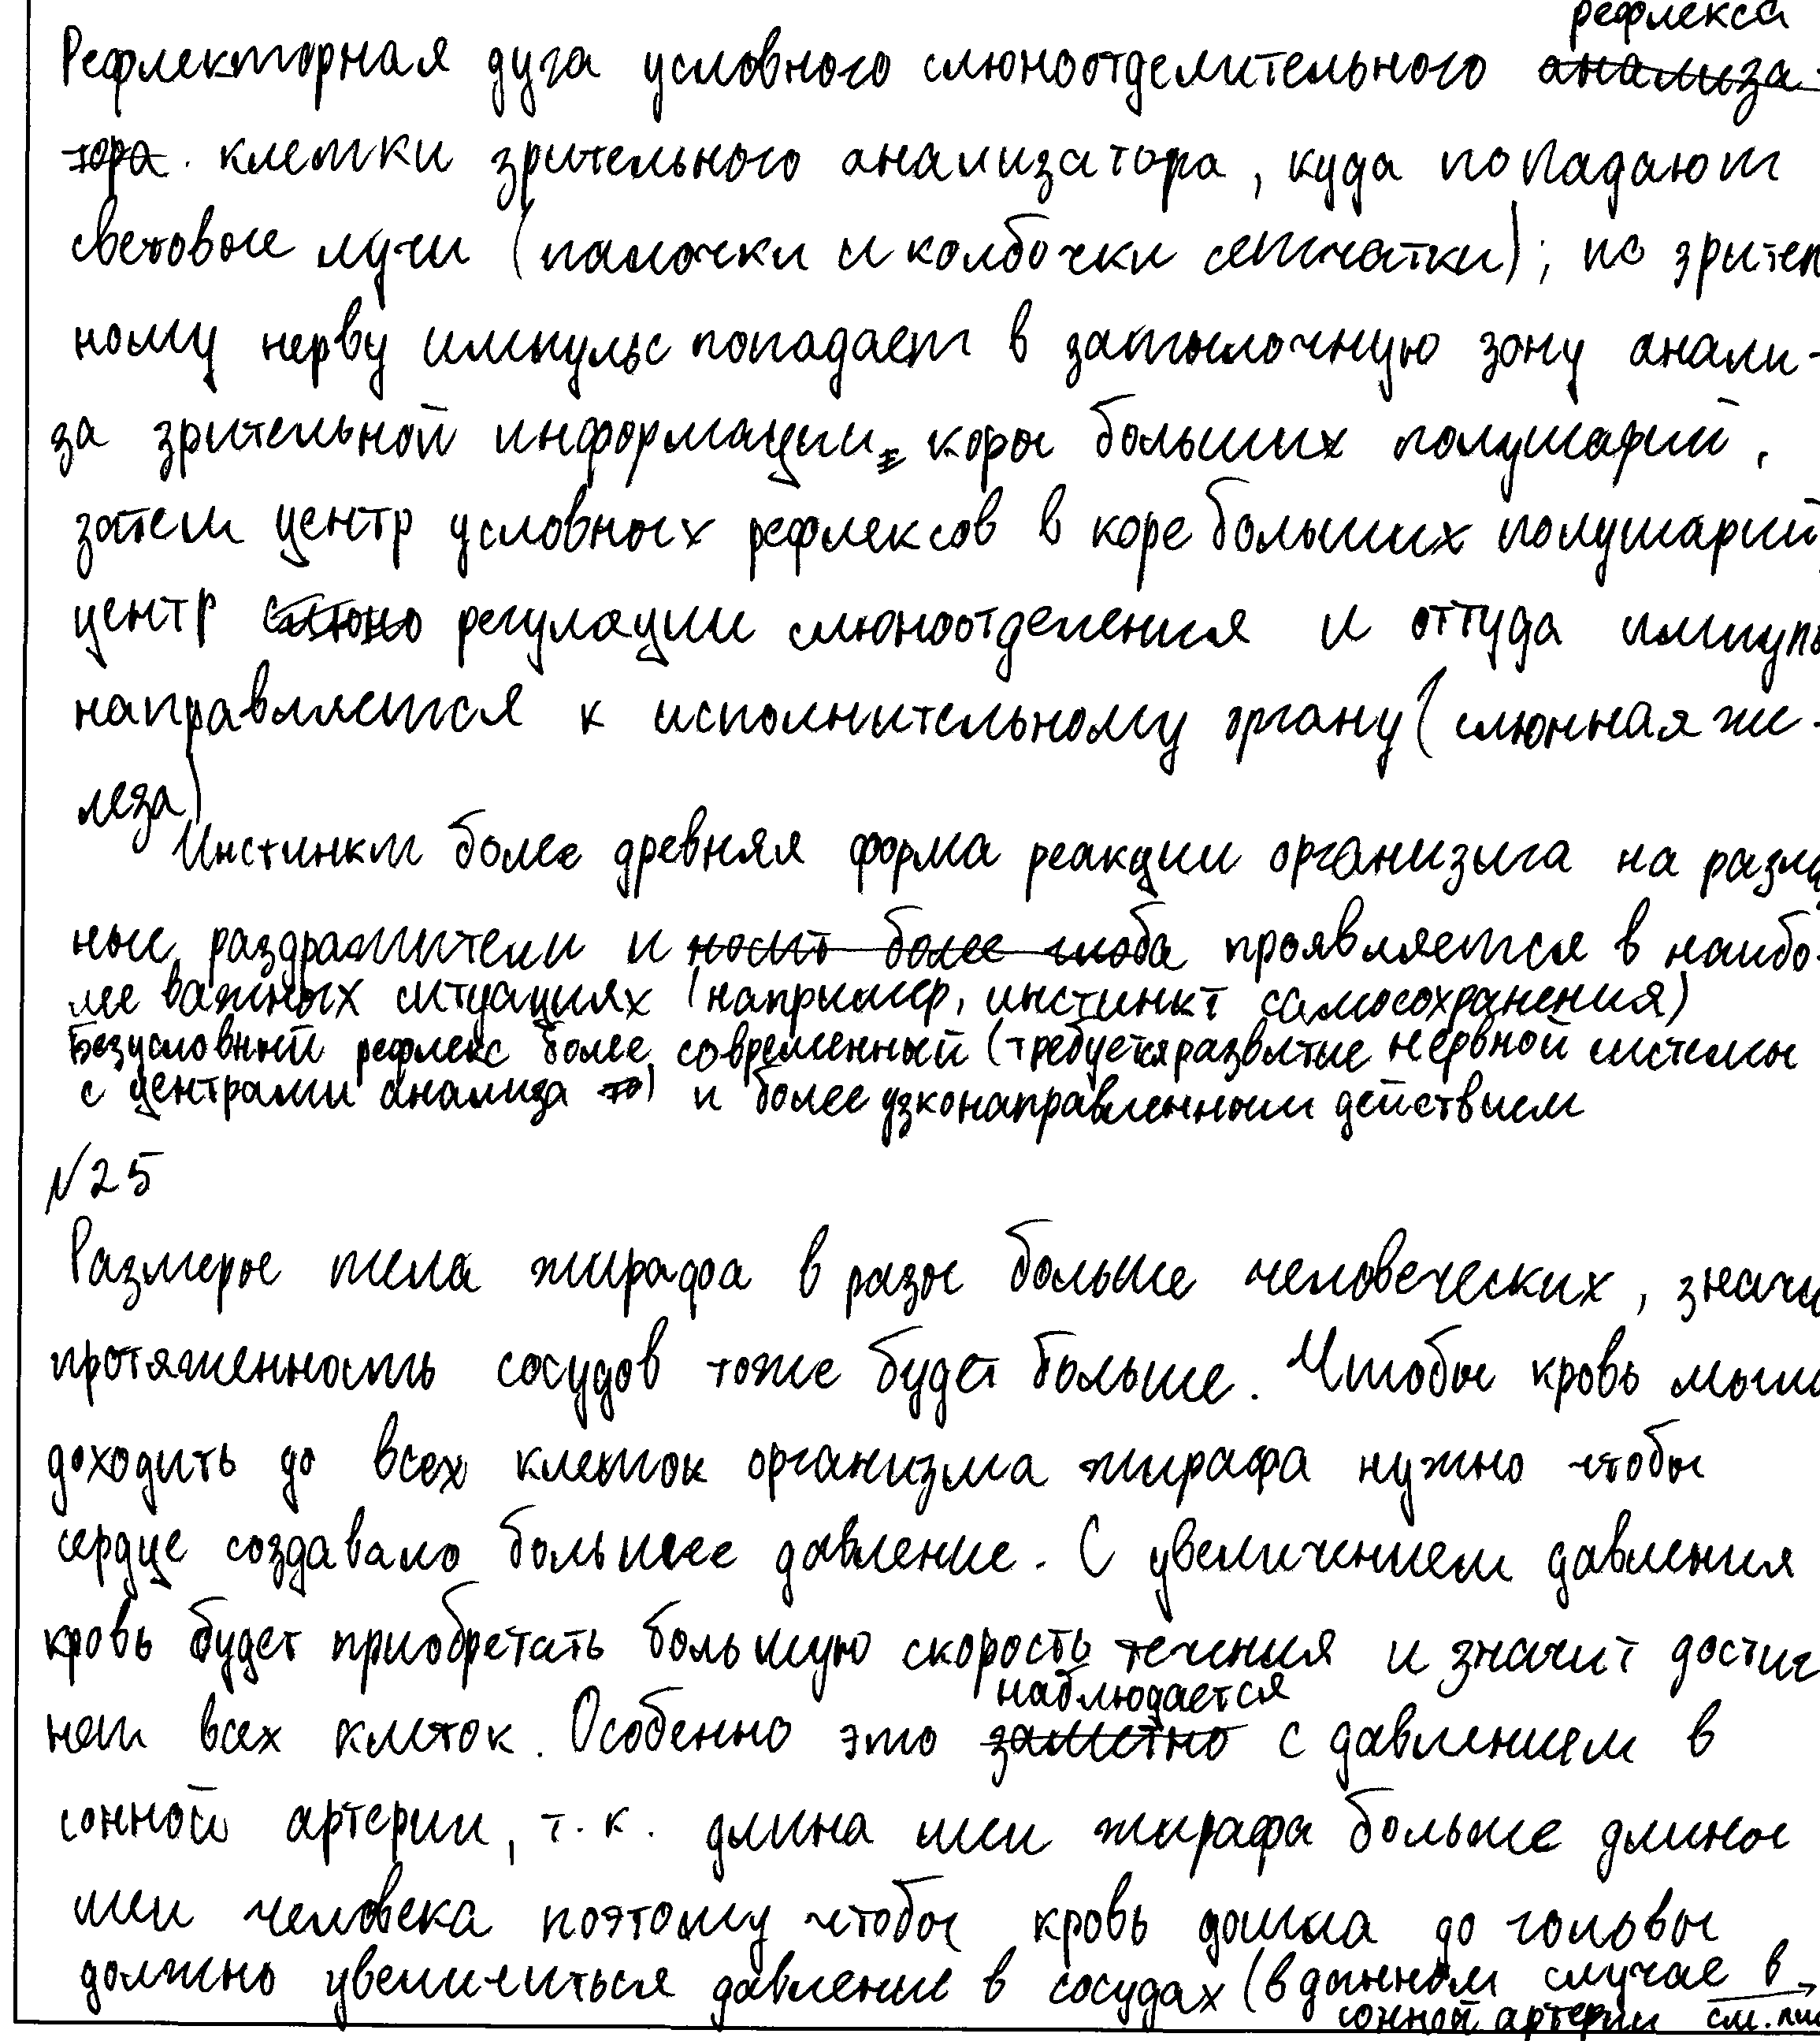 рефлекса
Рефлекторная дуга условного слюноотделительного анализа-
тора. клетки зрительного анализатора, куда попадают
световые лучи (палочки и колбочки сетчатки); по зрител
ному нерву импульс попадает в затылочную зону анали-
за зрительной информации коры больших полушарий,
затем центр условных рефлексов в коре больших полушарий,
центр слюно регуляции слюноотделения и оттуда импуль
направляется к исполнительному органу (слюнная же-
леза)
Инстинкт более древняя форма реакции организма на разли
ные раздражители и носит более глоба проявляется в наибо-
лее важных ситуациях (например, инстинкт самосохранения)
Безусловный рефлекс более современный (требуется развитие нервной системы
с центрами анализа то) и более узконаправленным действием
№25
Размеры тела жирафа в разы больше человеческих, значи
протяженность сосудов тоже будет больше. Чтобы кровь могла
доходить до всех клеток организма жирафа нужно чтобы
сердце создавало большее давление. С увеличением давления
кровь будет приобретать большую скорость течения и значит достиг
наблюдается
нет всех клеток. Особенно это заметно с давлением в
сонной артерии, т.к. длина шеи жирафа больше длины
шеи человека поэтому чтобы кровь дошла до головы
должно увеличиться давление в сосудах (в данном случае в
сонной артерии см. ли